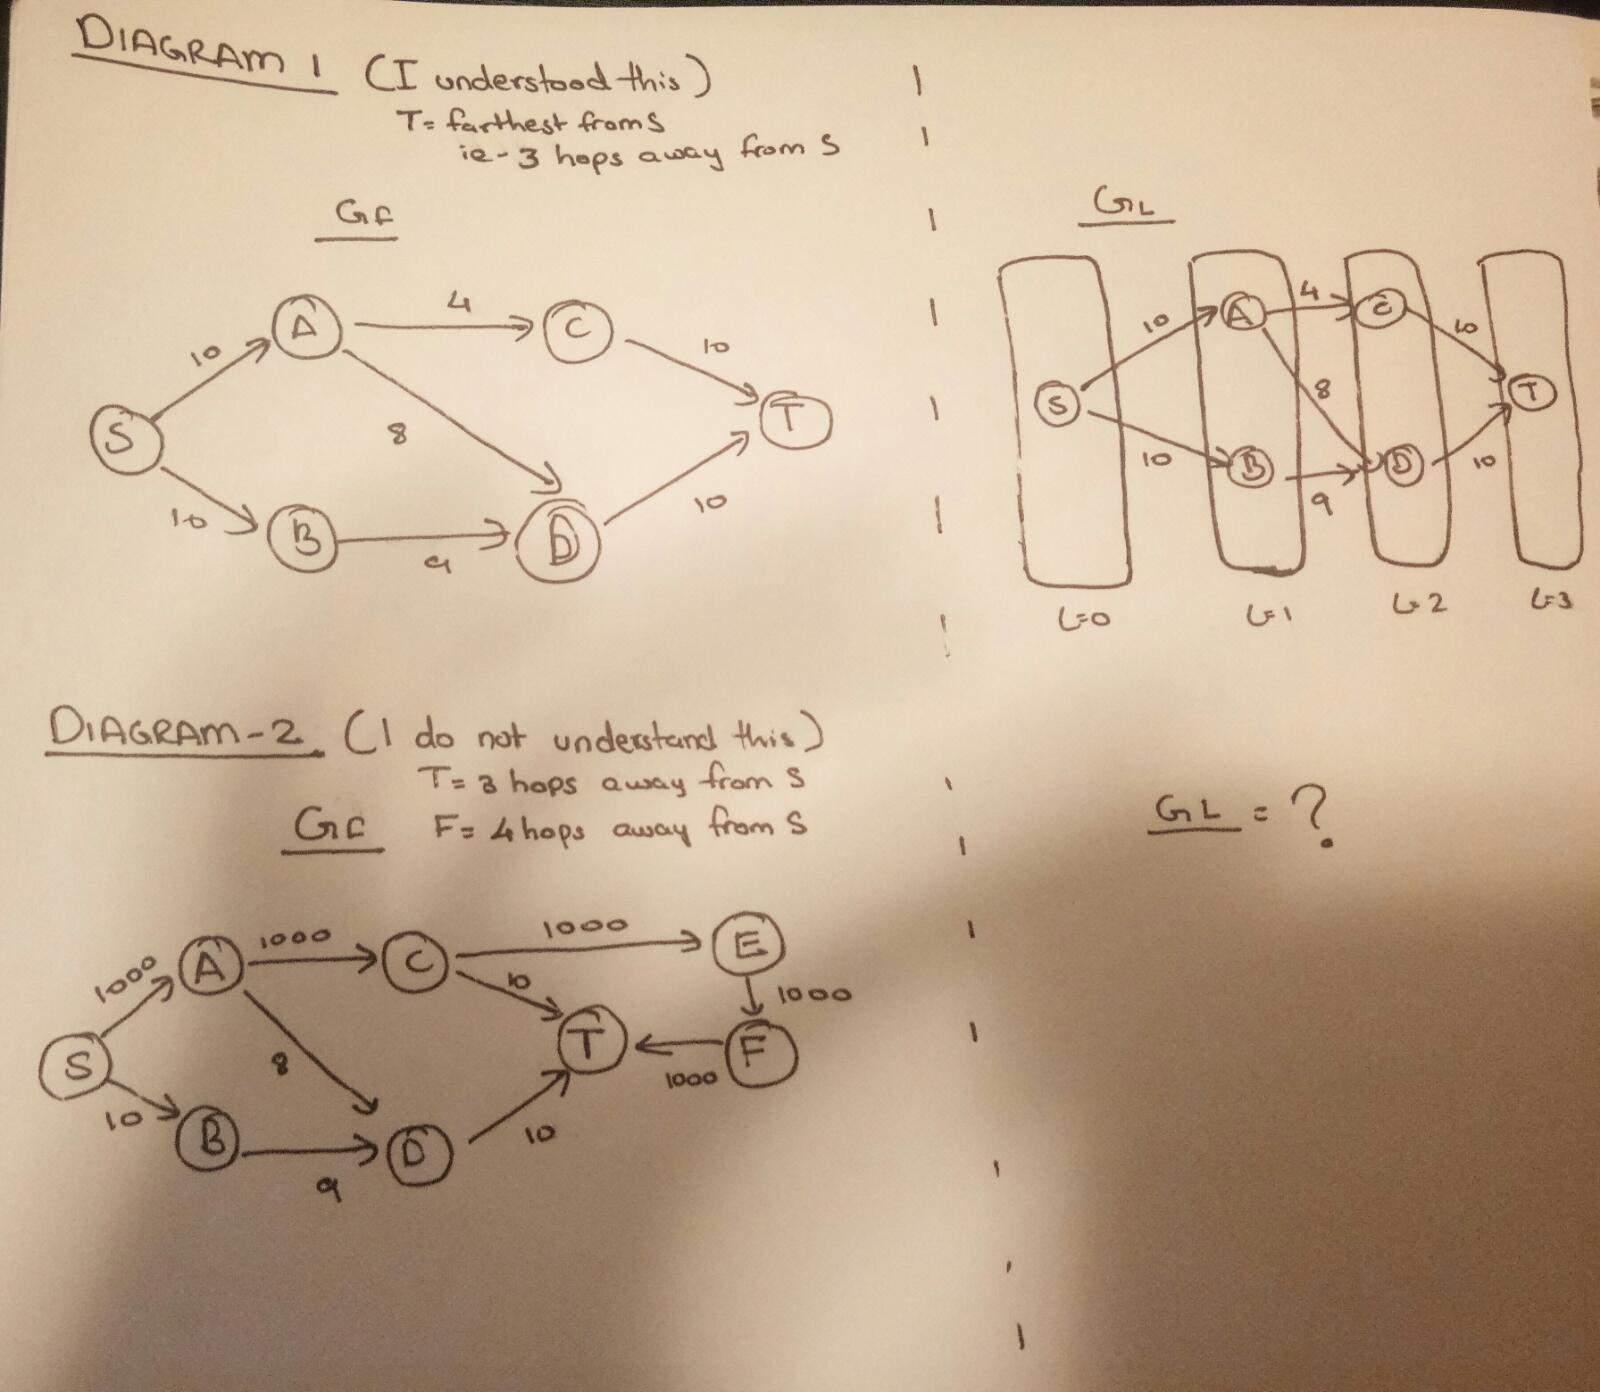 DIAGRAM 1 (I understood this)
T= farthest from S
ie - 3 hops away from S
Gf
GL
10
A
4
C
10
S
8
T
10
B
9
D
10
10
A
4
C
10
S
8
T
10
B
9
D
10
L=0
L=1
L=2
L=3
DIAGRAM-2 (I do not understand this)
T= 3 hops away from S
Gf
F= 4 hops away from S
GL = ?
1000
A
1000
C
1000
E
10
1000
S
8
T
1000
F
10
B
9
D
10